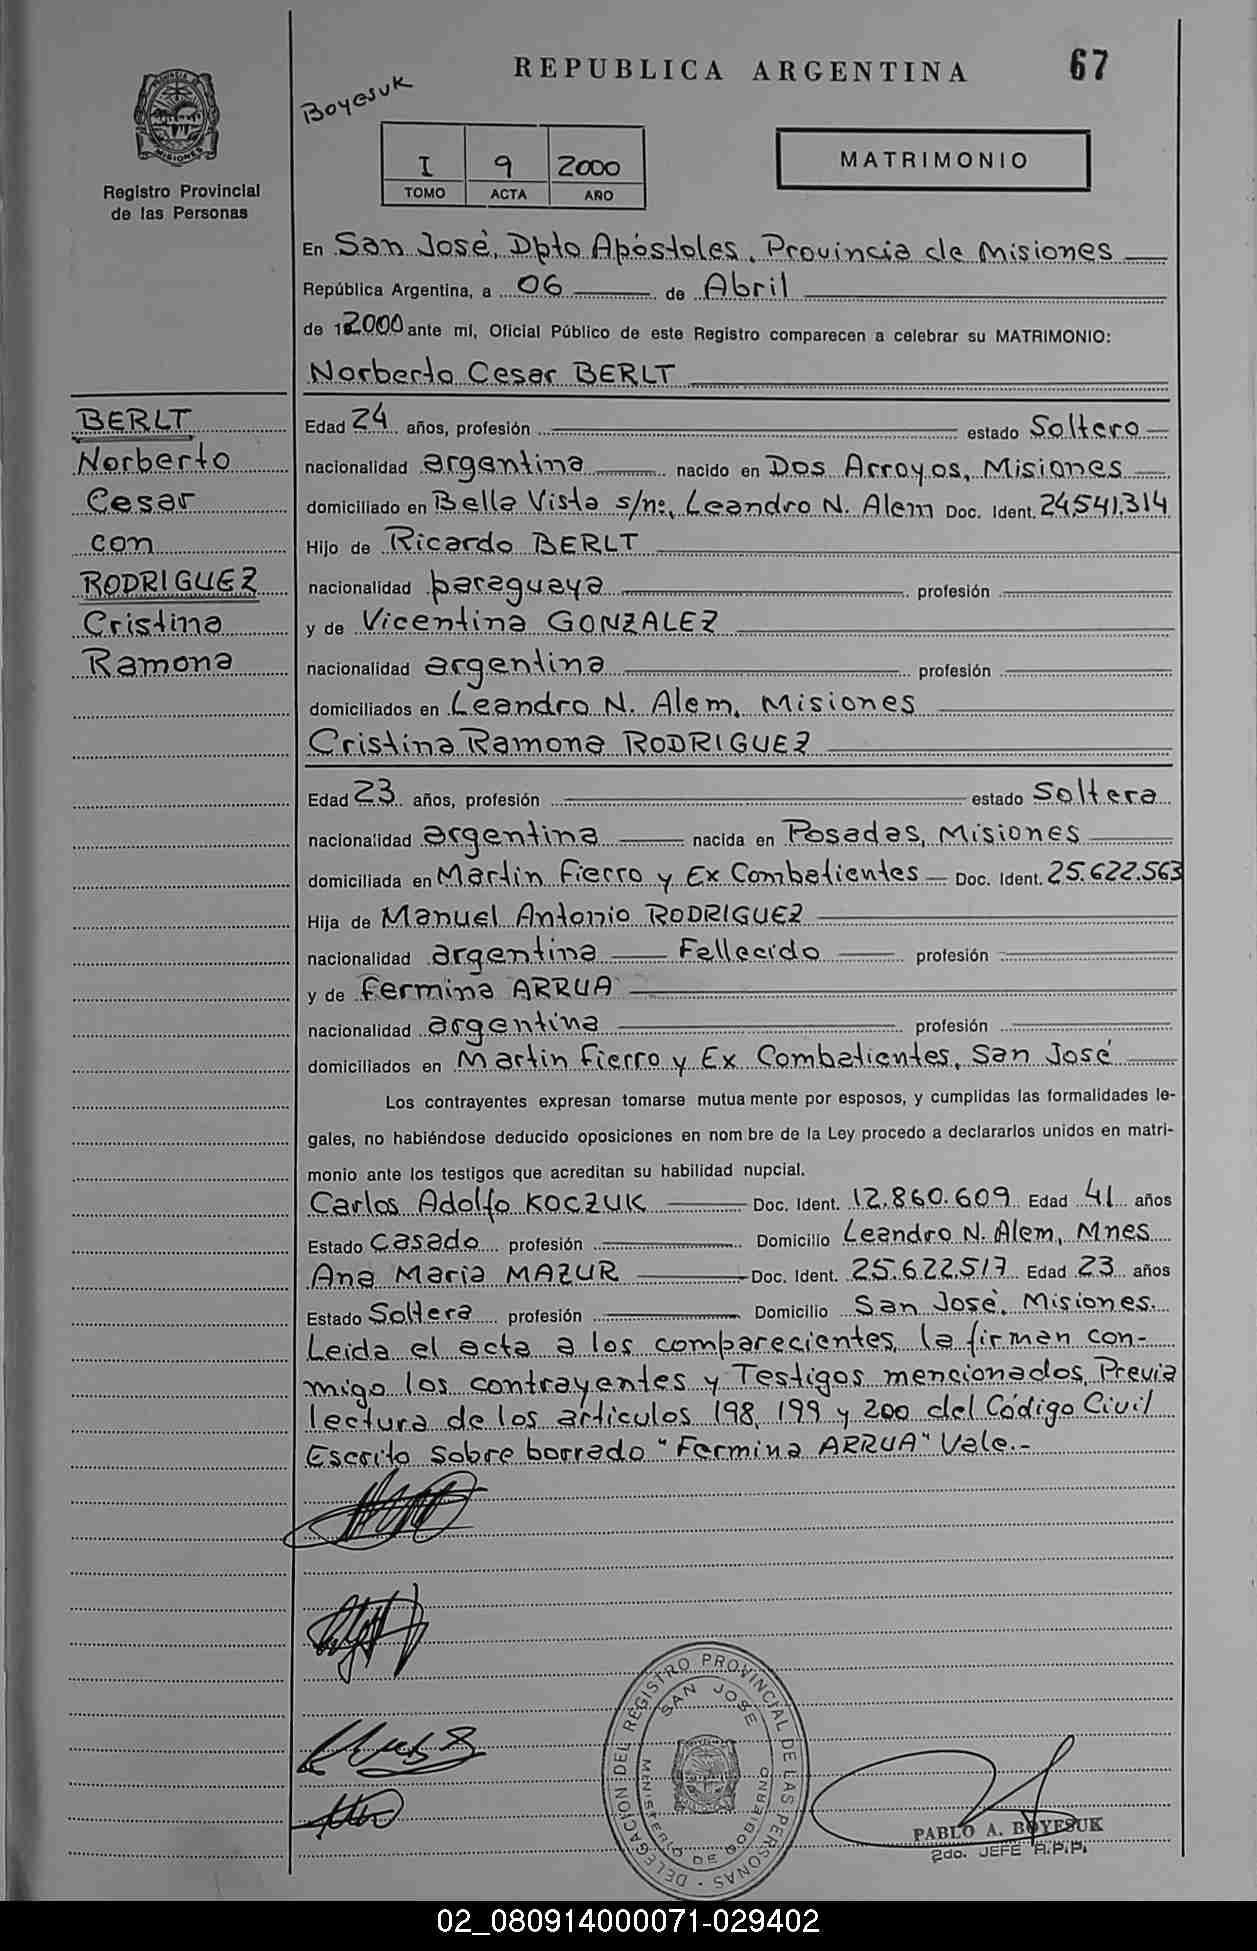 REPUBLICA ARGENTINA
67
Boyesuk
PROVINCIA DE
MISIONES
Registro Provincial
de las Personas
I 9 2000
TOMO ACTA AÑO
MATRIMONIO
En San José, Dpto Apóstoles, Provincia de Misiones
República Argentina, a 06 de Abril
de 2000 ante mí, Oficial Público de este Registro comparecen a celebrar su MATRIMONIO:
Norberto Cesar BERLT
BERLT
Norberto
Cesar
con
RODRIGUEZ
Cristina
Ramona
Edad 24 años, profesión estado Soltero
nacionalidad argentina nacido en Dos Arroyos, Misiones
domiciliado en Bella Vista s/nº, Leandro N. Alem Doc. Ident. 24.541.314
Hijo de Ricardo BERLT
nacionalidad paraguaya profesión
y de Vicentina GONZALEZ
nacionalidad argentina profesión
domiciliados en Leandro N. Alem, Misiones
Cristina Ramona RODRIGUEZ
Edad 23 años, profesión estado Soltera
nacionalidad argentina nacida en Posadas, Misiones
domiciliada en Martin Fierro y Ex Combatientes Doc. Ident. 25.622.563
Hija de Manuel Antonio RODRIGUEZ
nacionalidad argentina Fallecido profesión
y de Fermina ARRUA
nacionalidad argentina profesión
domiciliados en Martin Fierro y Ex Combatientes, San José
Los contrayentes expresan tomarse mutua mente por esposos, y cumplidas las formalidades le-
gales, no habiéndose deducido oposiciones en nom bre de la Ley procedo a declararlos unidos en matri-
monio ante los testigos que acreditan su habilidad nupcial.
Carlos Adolfo KOCZUK Doc. Ident. 12.860.609 Edad 41 años
Estado Casado profesión Domicilio Leandro N. Alem, Mnes
Ana Maria MAZUR Doc. Ident. 25.622.517 Edad 23 años
Estado Soltera profesión Domicilio San José, Misiones.
Leida el acta a los comparecientes, la firman con-
migo los contrayentes y Testigos mencionados, Previa
lectura de los articulos 198, 199 y 200 del Código Civil
Escrito sobre borrado "Fermina ARRUA" Vale.-
DELEGACION DEL REGISTRO PROVINCIAL DE LAS PERSONAS
SAN JOSE
MINISTERIO DE GOBIERNO
PABLO A. BOYESUK
2do. JEFE R.P.P.
02_080914000071-029402